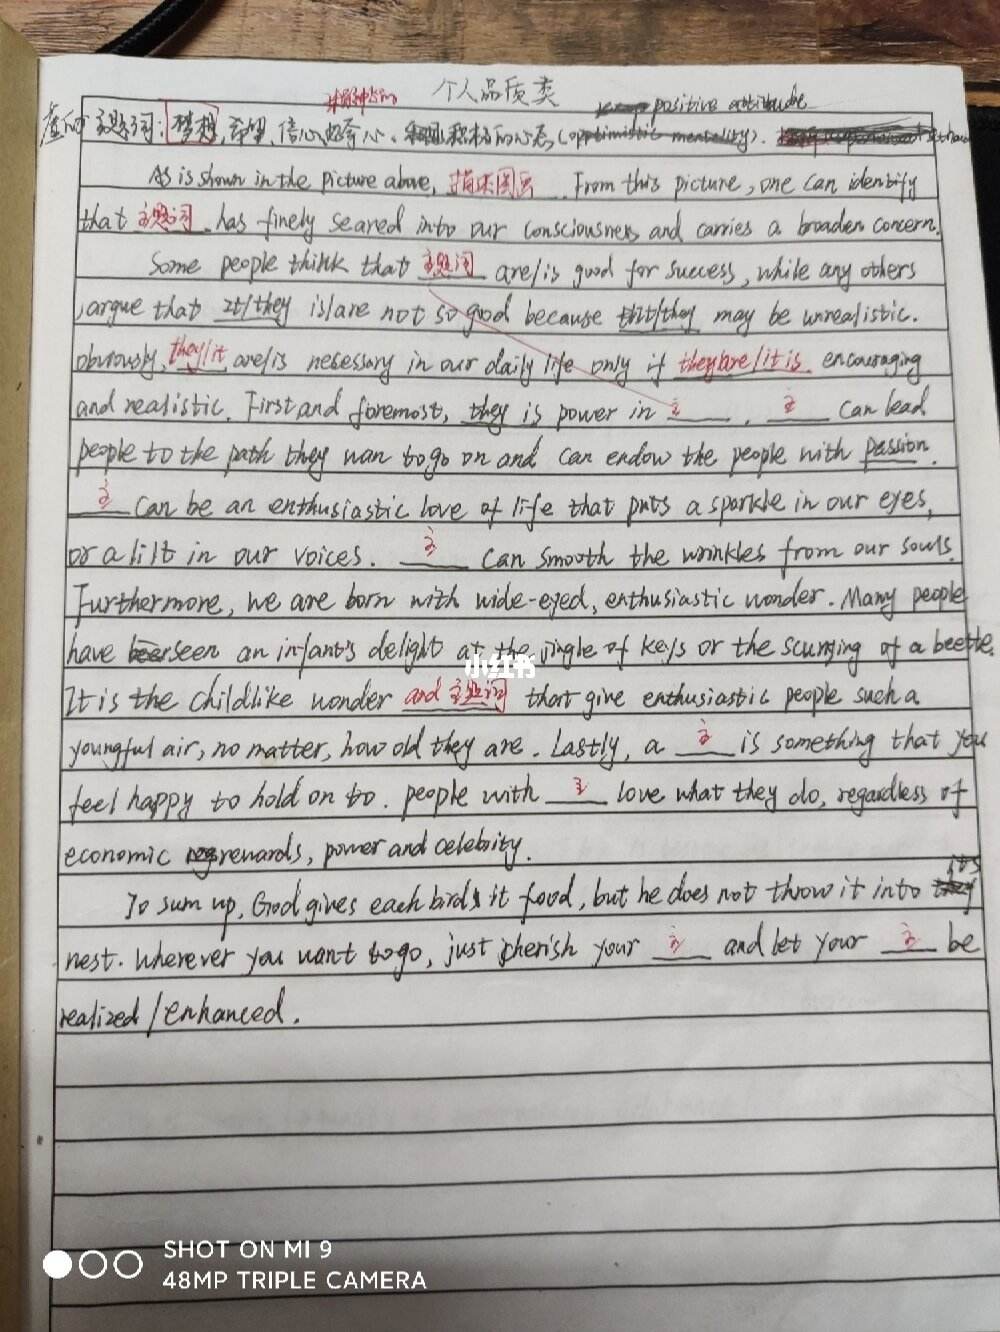 个人品质类
精神方面
positive attitude
主题词:梦想,希望,信心,好奇心、积极的心态,(optimistic mentality).
As is shown in the picture above, 描述图画. From this picture, one can identify
that 主题词 has finely seared into our consciousness and carries a broaden concern.
Some people think that 主题词 are/is good for success, while any others
,argue that it/they is/are not so good because that/they may be unrealistic.
Obviously, they/it are/is necessary in our daily life only if they are/it is encouraging
and realistic. First and foremost, they is power in 主. 主 can lead
people to the path they wan to go on and can endow the people with passion.
主 Can be an enthusiastic love of life that puts a sparkle in our eyes,
or a lilt in our voices. 主 can smooth the wrinkles from our souls.
Furthermore, we are born with wide-eyed, enthusiastic wonder. Many people
have seen an infant's delight at the jingle of keys or the scurrying of a beetle.
It is the childlike wonder and 主题词 that give enthusiastic people such a
youngful air, no matter, how old they are. Lastly, a 主 is something that you
feel happy to hold on to. people with 主 love what they do, regardless of
economic rewards, power and celebrity.
To sum up, God gives each birds it food, but he does not throw it into its
nest. Wherever you want to go, just cherish your 主 and let your 主 be
realized/enhanced.
小红书
SHOT ON MI 9
48MP TRIPLE CAMERA